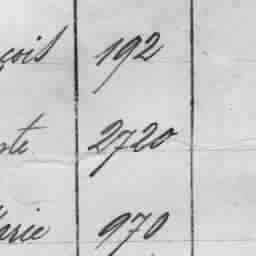 çois 192
pte 2720
arie 970